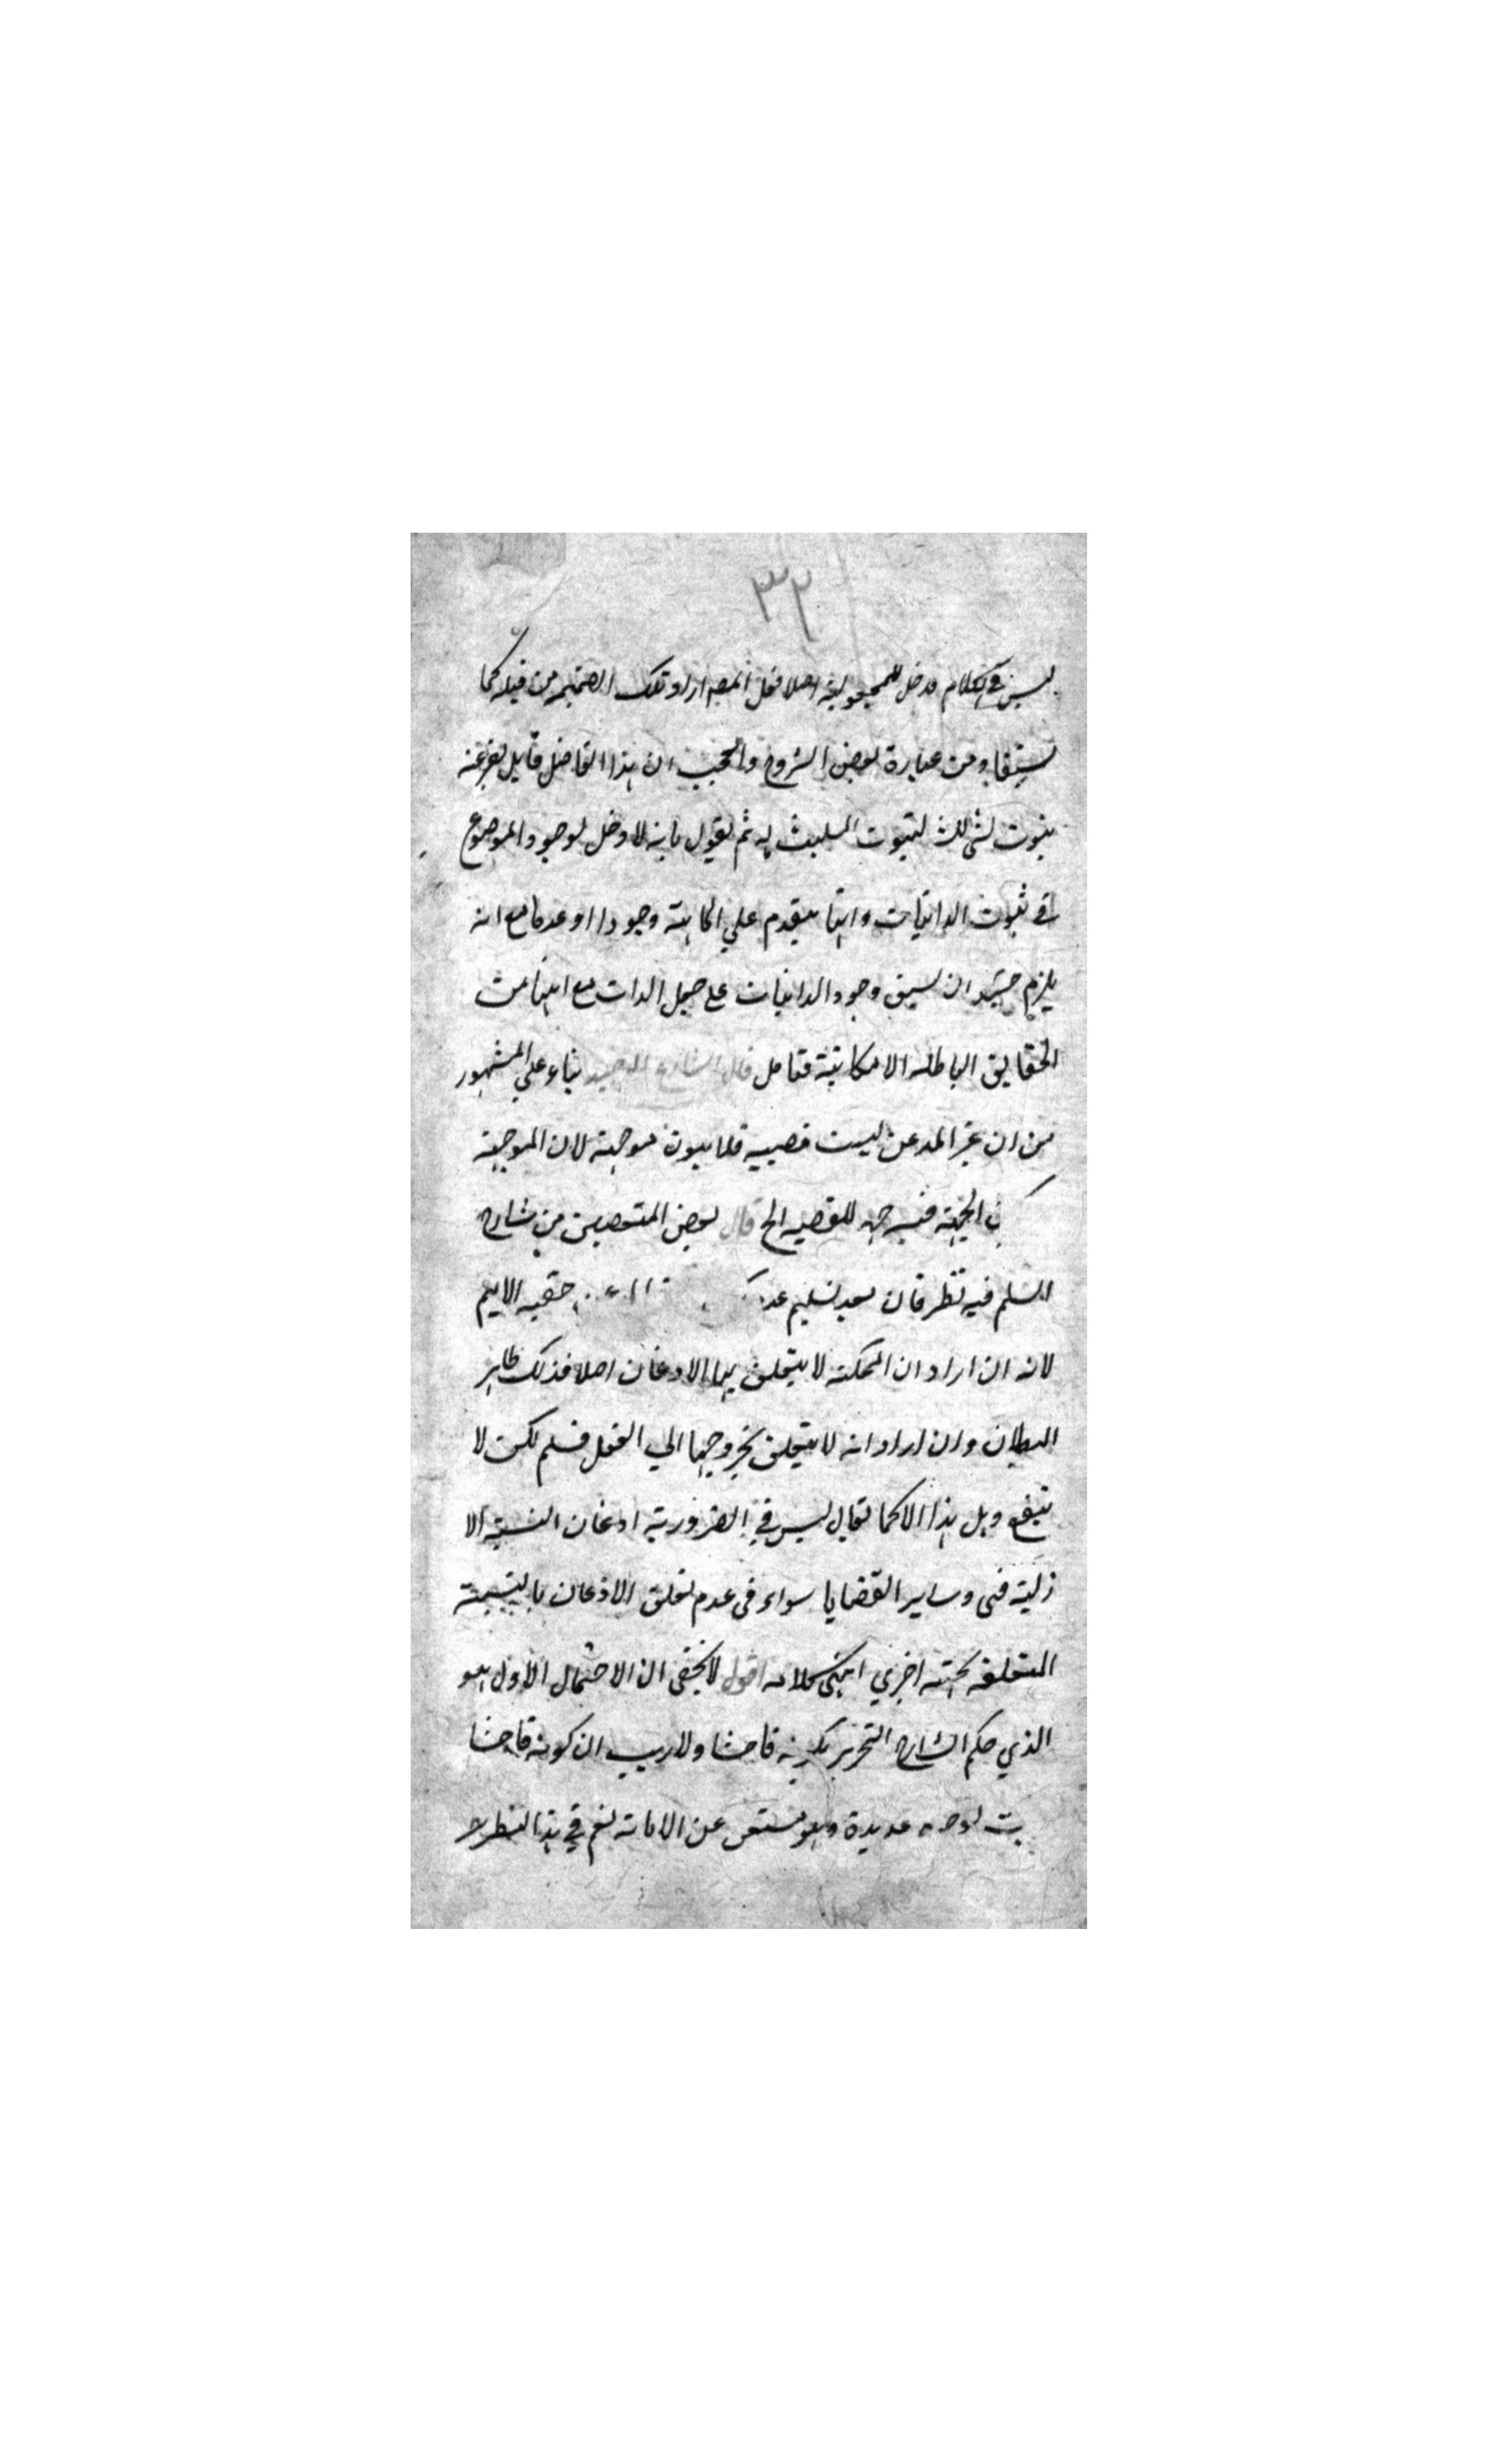 ٣٢
ليس في الكلام مدخل للمجعولية اصلا فعل المصـ اراد تلك الضميمه من قبله كما
يستفاد من عبارة بعض الشروح والعجب ان هذا الفاضل قايل بفرعية
ثبوت لشئ لشئ لثبوت المثبت له ثم يقول بانه لا دخل لوجود الموضوع
في ثبوت الذاتيات وانها يتقدم علي الماهية وجودا او عدما مع انه
يلزم حينئذ ان يسبق وجود الذاتيات على جعل الذات مع انها من
الحقايق الباطله الامكانية فتامل قال الشارح بناء علي المشهور
من ان غير المذعن ليست قضيه فلا يكون موجهة لان الموجهة
الجهة فيه جهه للقضيه الخ قال بعض المتعصبين من شارح
السلم فيه نظر فان بعد تسليم حقيه الايم
لانه ان اراد ان الممكنه لا يتعلق بها الاذعان اصلا فذلك ظاهر
البطلان وان اراد انه لا يتعلق بخروجها الي الفعل فمسلم لكن لا
ينفع وهل هذا الا كما يقال ليس في الضرورية اذعان النسبة الا
زلية فهى وساير القضايا سواء فى عدم تعلق الاذعان بالنسبة
المتعلقه بجهة اخري انتهى كلامه اقول لا يخفى ان الاحتمال الاول هو
الذي حكم الشارح التحرير بكونه فاحشا ولا ريب ان كونه فاحشا
بوجوه عديدة وهو مستغن عن الابانه نعم في هذا النظر